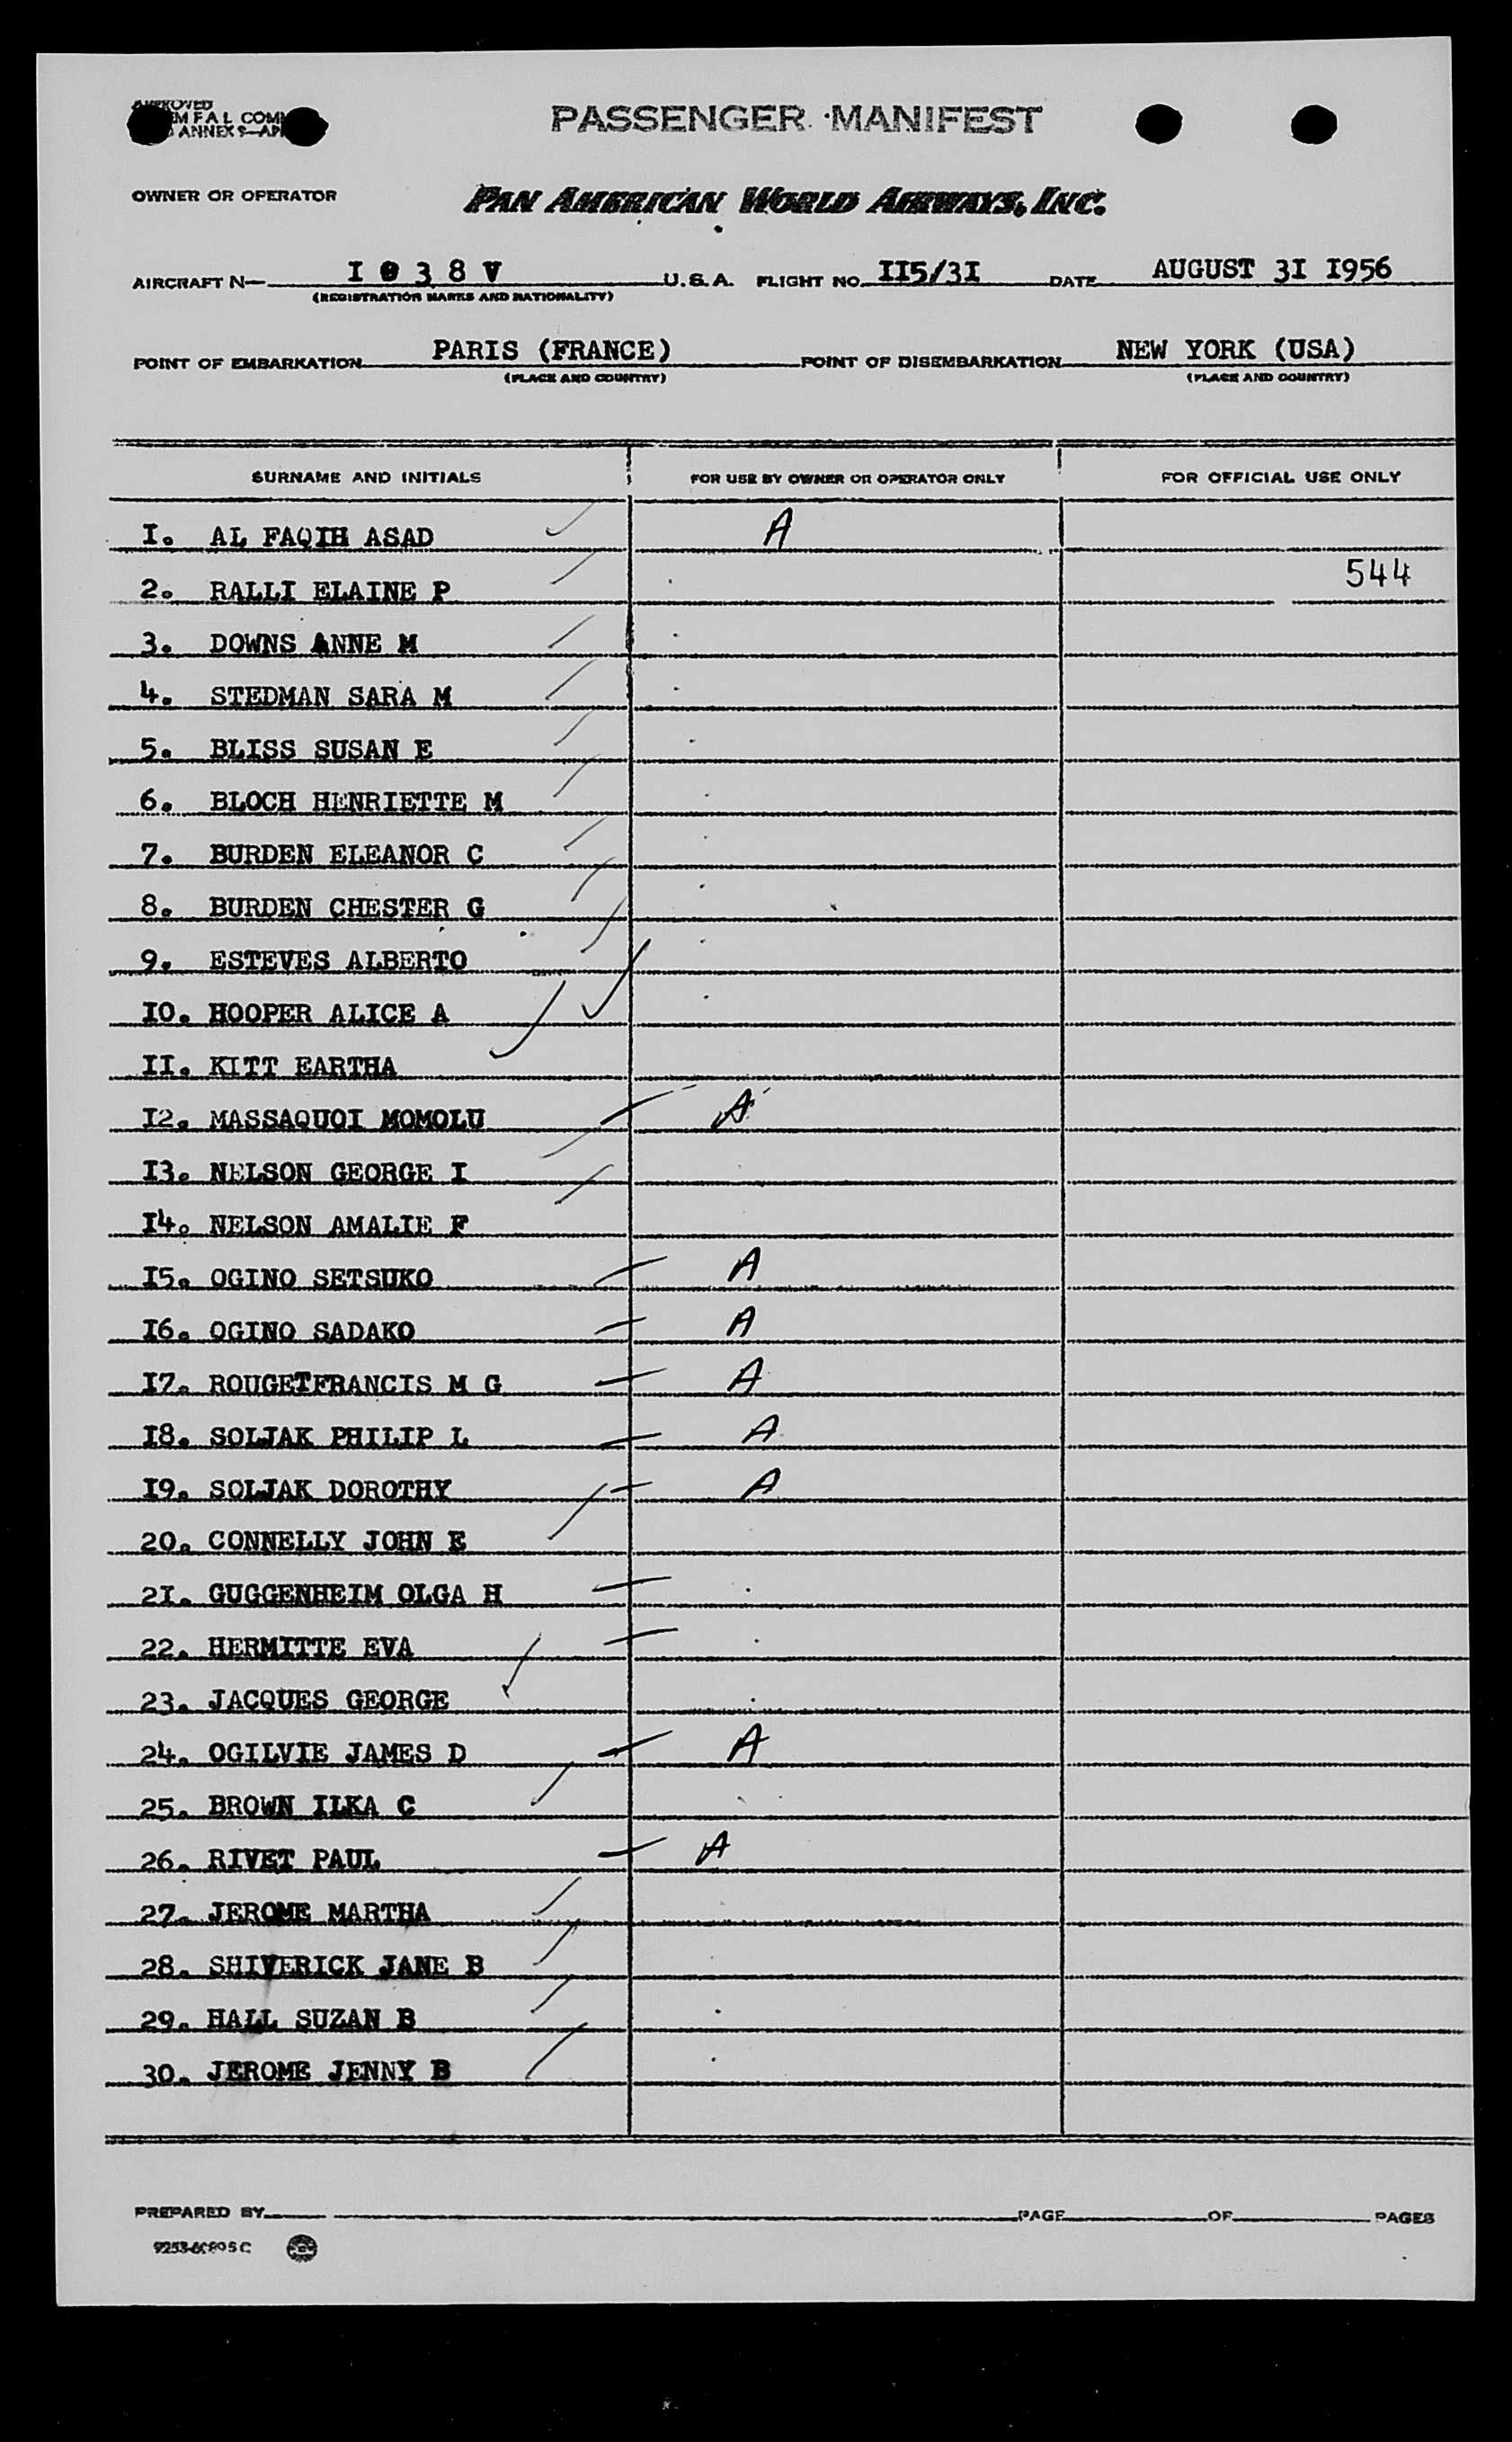 APPROVED
EM F A L COMM
ANNEX 9—AP
PASSENGER MANIFEST
OWNER OR OPERATOR PAN AMERICAN WORLD AIRWAYS, INC.
AIRCRAFT N— I 0 3 8 V U.S.A. FLIGHT NO. II5/3I DATE AUGUST 3I I956
(REGISTRATION MARKS AND NATIONALITY)
POINT OF EMBARKATION PARIS (FRANCE) POINT OF DISEMBARKATION NEW YORK (USA)
(PLACE AND COUNTRY) (PLACE AND COUNTRY)
SURNAME AND INITIALS FOR USE BY OWNER OR OPERATOR ONLY FOR OFFICIAL USE ONLY
I. AL FAQIH ASAD A
2. RALLI ELAINE P 544
3. DOWNS ANNE M
4. STEDMAN SARA M
5. BLISS SUSAN E
6. BLOCH HENRIETTE M
7. BURDEN ELEANOR C
8. BURDEN CHESTER G
9. ESTEVES ALBERTO
I0. HOOPER ALICE A
II. KITT EARTHA
I2. MASSAQUOI MOMOLU A
I3. NELSON GEORGE I
I4. NELSON AMALIE F
I5. OGINO SETSUKO A
I6. OGINO SADAKO A
I7. ROUGETFRANCIS M G A
I8. SOLJAK PHILIP L A
I9. SOLJAK DOROTHY A
20. CONNELLY JOHN E
2I. GUGGENHEIM OLGA H
22. HERMITTE EVA
23. JACQUES GEORGE
24. OGILVIE JAMES D A
25. BROWN ILKA C
26. RIVET PAUL A
27. JEROME MARTHA
28. SHIVERICK JANE B
29. HALL SUZAN B
30. JEROME JENNY B
PREPARED BY PAGE OF PAGES